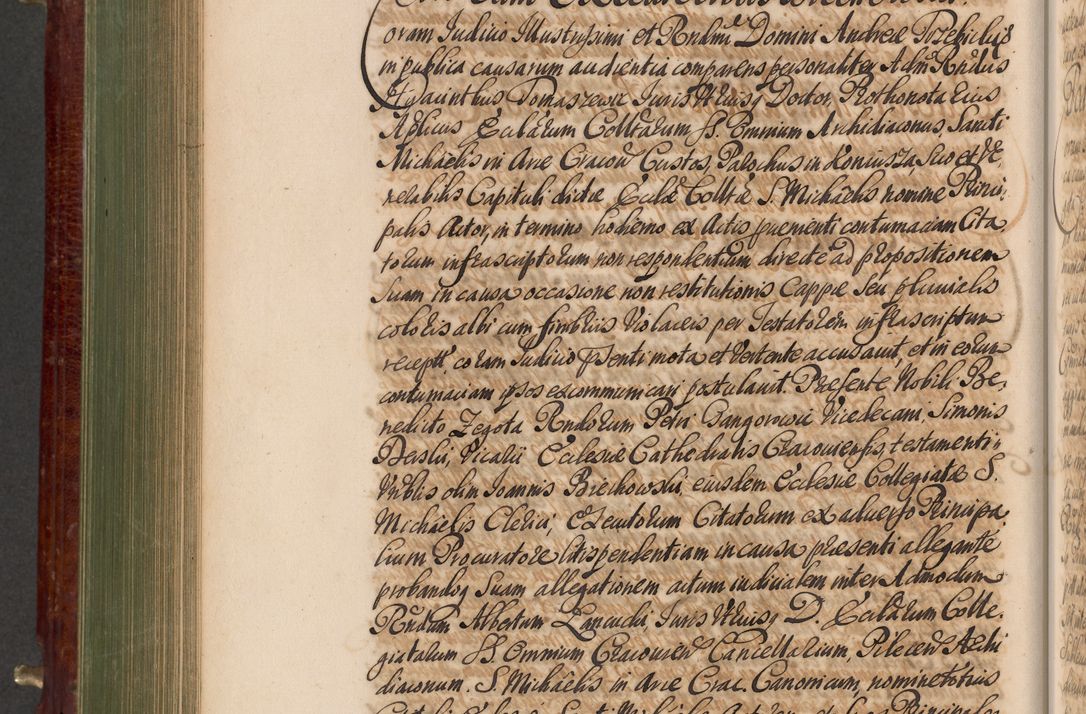 oram Judicio Illustrissimi et Rndmi Domini Andreæ Trzebicki
in publica causarum audientia comparens personaliter Adm Rndus
Hyacinthus Tomaszewic Juris Utriusq Doctor, Prothonotarius
Aplicus Ecclarum Colltarum SS. Omnium Archidiaconus, Sancti
Michaelis in Arce Cracoū Custos, Parochus in Koniusza, suo et Ve
nelabilis Capituli dictæ Ecclæ Colltæ S. Michaelis nomine Princi
palis Actor, in termino hodierno ex Actis pnenienti contumaciam Cita
torum infrascriptorum non respondentium directe ad propositionem
suam in causa occasione non restitutionis Cappæ seu pluvialis
coloris albi cum fimbriis violaceis per Testatorem infrascriptum
recept coram Judicio psenti mota et vertente accusavit, et in eorum
contumaciam ipsos excommunicari postulavit. Præsente Nobili Be,
nedicto Zegota Rndorum Petri Gangorowic Vicedecani, Simonis
Vicarii Ecclesiæ Cathedralis Cracoviensis, testamenti
olim Joannis Bieckowski, eiusdem Ecclesiæ Collegiatæ S.
Michaelis Clerici, Exeutorum Citatorum ex adverso Principa
lium Procuratore litispendentiam in causa præsenti allegante
probandoq suam allegationem actum iudicialem inter Admodum
Rndum Albertum Lancucki, Juris Utriusq D. Ecclarum Colle,
giatarum SS. Omnium Cracovien Cancellarium, Pilecen Archi
diaconum. S. Michaelis in Arce Crac. Canonicum, nomine totius